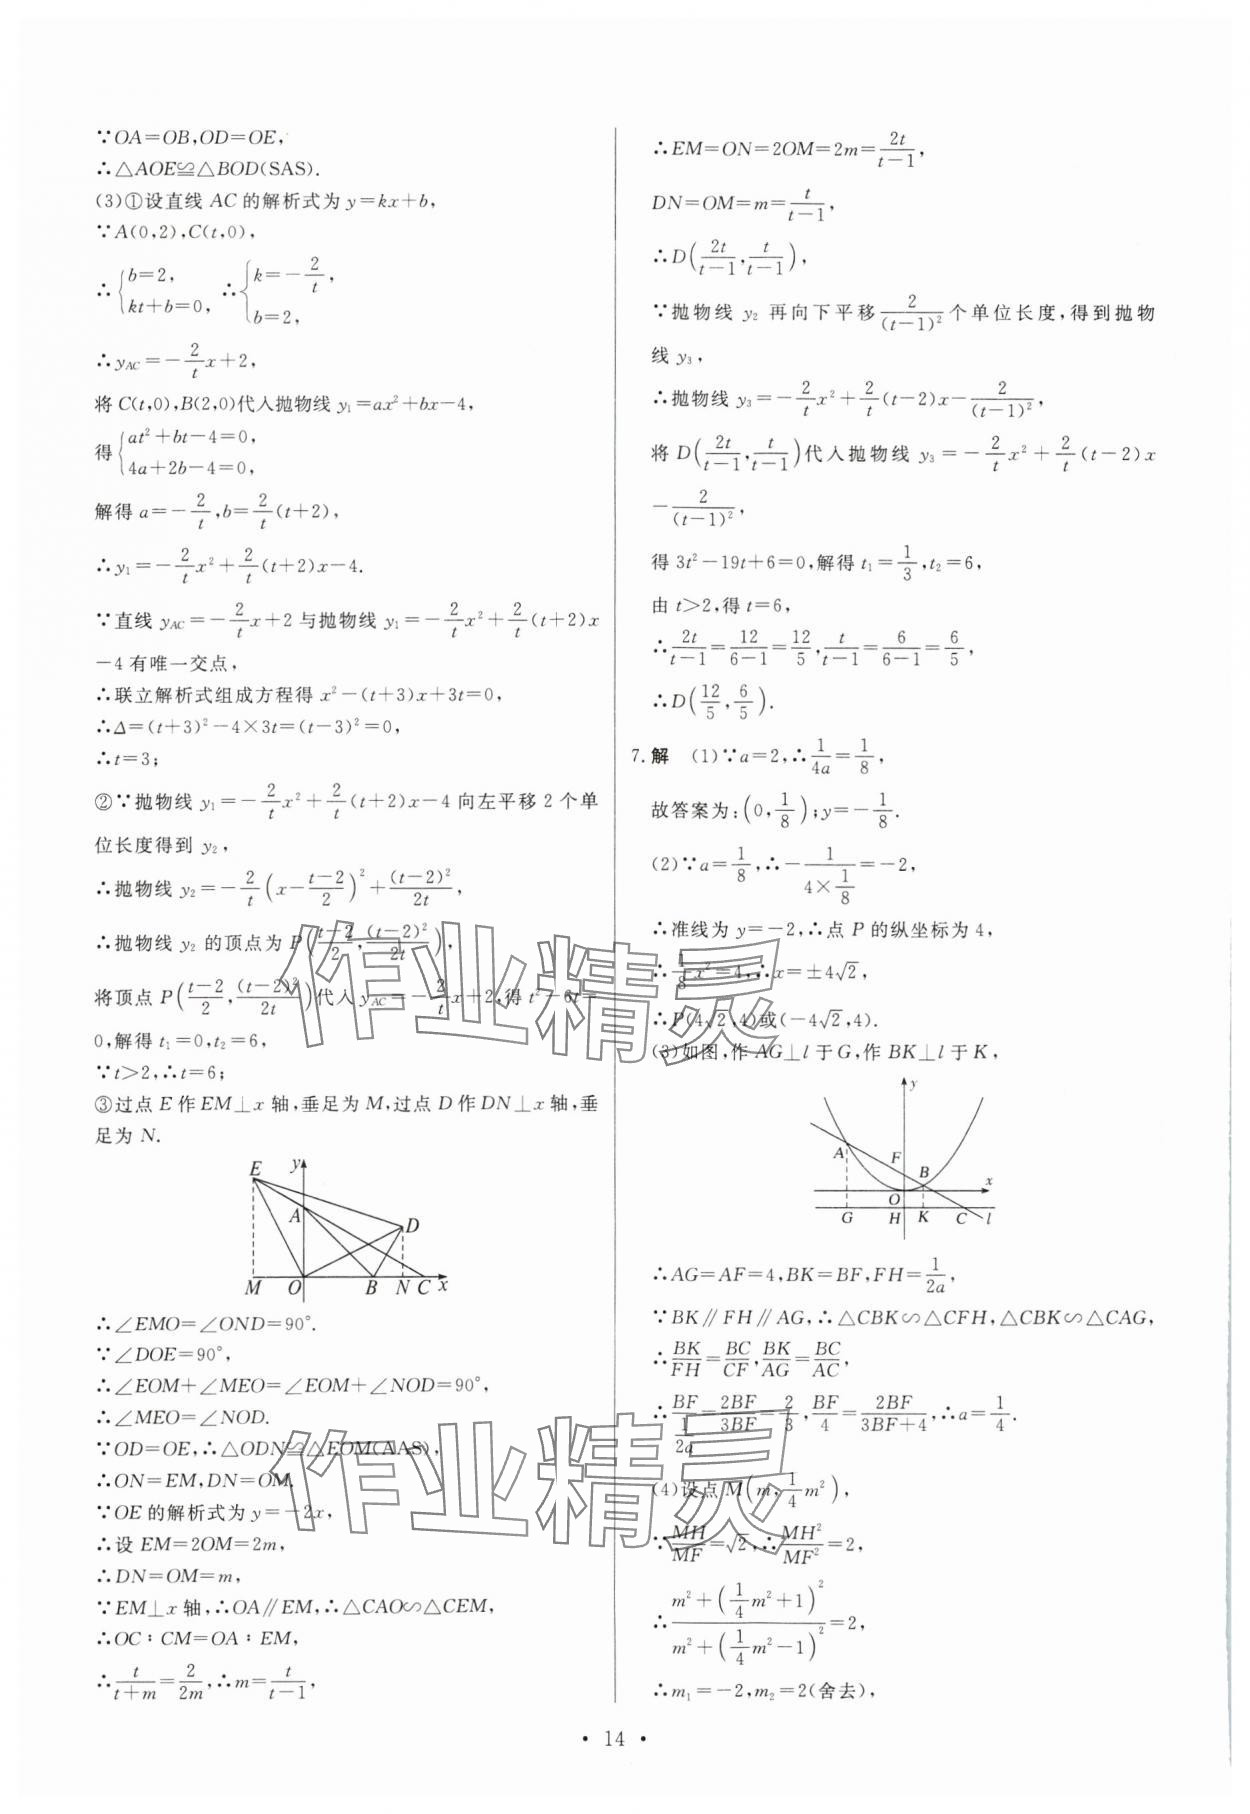 ∵OA=OB,OD=OE,
∴△AOE≌△BOD(SAS).
(3)①设直线 AC 的解析式为 y=kx+b,
∵A(0,2),C(t,0),
∴{b=2, kt+b=0, ∴{k=-2/t, b=2,
∴y_AC=-2/t x+2,
将 C(t,0),B(2,0)代入抛物线 y₁=ax²+bx-4,
得{at²+bt-4=0, 4a+2b-4=0,
解得 a=-2/t,b=2/t(t+2),
∴y₁=-2/t x²+2/t(t+2)x-4.
∵直线 y_AC=-2/t x+2 与抛物线 y₁=-2/t x²+2/t(t+2)x
-4 有唯一交点,
∴联立解析式组成方程得 x²-(t+3)x+3t=0,
∴Δ=(t+3)²-4×3t=(t-3)²=0,
∴t=3;
②∵抛物线 y₁=-2/t x²+2/t(t+2)x-4 向左平移 2 个单
位长度得到 y₂,
∴抛物线 y₂=-2/t(x-(t-2)/2)²+(t-2)²/2t,
∴抛物线 y₂ 的顶点为 P((t-2)/2,(t-2)²/2t),
将顶点 P((t-2)/2,(t-2)²/2t)代入 y_AC=-2/t x+2,得 t²-6t=
0,解得 t₁=0,t₂=6,
∵t>2,∴t=6;
③过点 E 作 EM⊥x 轴,垂足为 M,过点 D 作 DN⊥x 轴,垂
足为 N.
E
y
A
D
M
O
B
N
C
x
∴∠EMO=∠OND=90°.
∵∠DOE=90°,
∴∠EOM+∠MEO=∠EOM+∠NOD=90°,
∴∠MEO=∠NOD.
∵OD=OE,∴△ODN≌△EOM(AAS),
∴ON=EM,DN=OM.
∵OE 的解析式为 y=-2x,
∴设 EM=2OM=2m,
∴DN=OM=m,
∵EM⊥x 轴,∴OA∥EM,∴△CAO∽△CEM,
∴OC∶CM=OA∶EM,
∴t/(t+m)=2/2m,∴m=t/(t-1),
∴EM=ON=2OM=2m=2t/(t-1),
DN=OM=m=t/(t-1),
∴D(2t/(t-1),t/(t-1)),
∵抛物线 y₂ 再向下平移 2/(t-1)² 个单位长度,得到抛物
线 y₃,
∴抛物线 y₃=-2/t x²+2/t(t-2)x-2/(t-1)²,
将 D(2t/(t-1),t/(t-1))代入抛物线 y₃=-2/t x²+2/t(t-2)x
-2/(t-1)²,
得 3t²-19t+6=0,解得 t₁=1/3,t₂=6,
由 t>2,得 t=6,
∴2t/(t-1)=12/(6-1)=12/5,t/(t-1)=6/(6-1)=6/5,
∴D(12/5,6/5).
7.解 (1)∵a=2,∴1/4a=1/8,
故答案为:(0,1/8);y=-1/8.
(2)∵a=1/8,∴-1/(4×1/8)=-2,
∴准线为 y=-2,∴点 P 的纵坐标为 4,
∴1/8 x²=4,∴x=±4√2,
∴P(4√2,4)或(-4√2,4).
(3)如图,作 AG⊥l 于 G,作 BK⊥l 于 K,
y
A
F
B
x
O
G
H
K
C
l
∴AG=AF=4,BK=BF,FH=1/2a,
∵BK∥FH∥AG,∴△CBK∽△CFH,△CBK∽△CAG,
∴BK/FH=BC/CF,BK/AG=BC/AC,
∴BF/(1/2a)=2BF/3BF=2/3,BF/4=2BF/(3BF+4),∴a=1/4.
(4)设点 M(m,1/4 m²),
∵MH/MF=√2,∴MH²/MF²=2,
∴(m²+(1/4 m²+1)²)/(m²+(1/4 m²-1)²)=2,
∴m₁=-2,m₂=2(舍去),
• 14 •
作业精灵
作业精灵